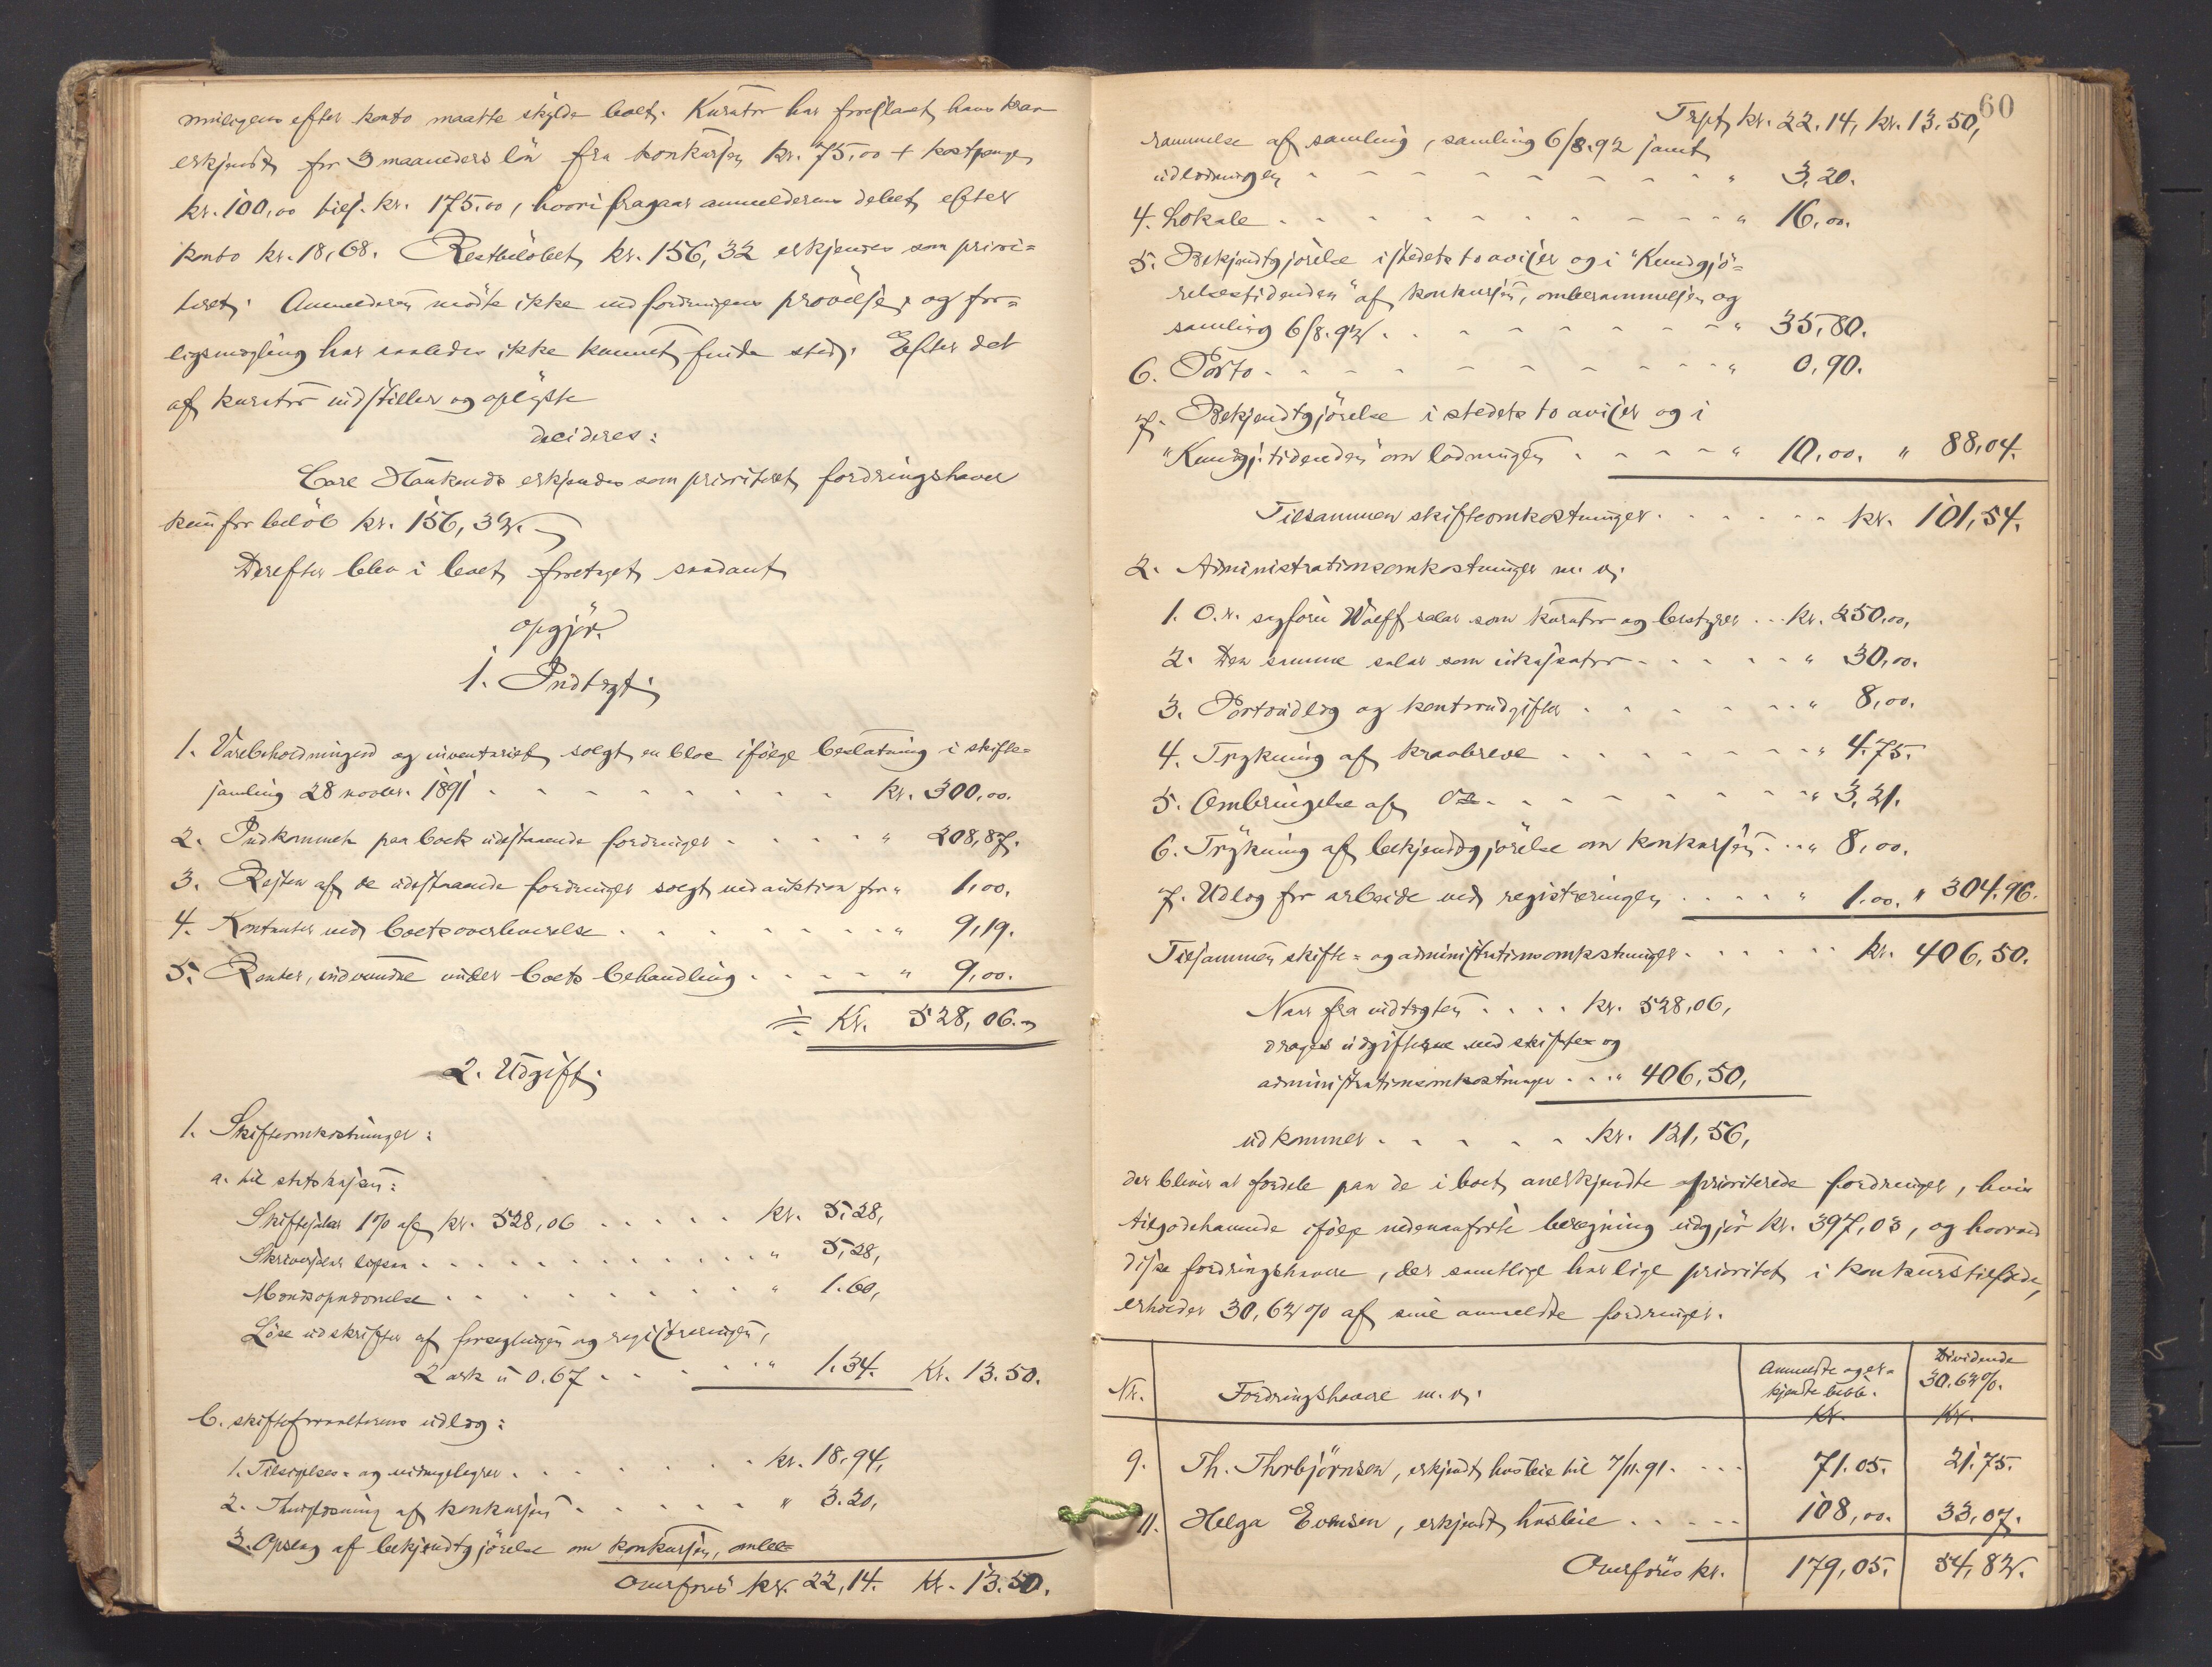 muligens efter konto maatte skylde boet. Kurator har foreslaaet hans krav
erkjendt for 3 maaneders lön fra konkursen kr. 75,00 + kostpenge
kr. 100,00 tils. kr. 175,00, hvori fragaar anmelderens debet efter
konto kr. 18,68. Restbelöbet kr. 156,32 erkjendes som priori-
teret. Anmelderen mödte ikke ved fordringens prövelse, og for-
ligsmægling har saaledes ikke kunnet finde sted. Efter det
af kurator indstillede og oplyste
decideres:
erkjendes som prioriteret fordringshaver
kun for belöb kr. 156,32.
Derefter blev i boet foretaget saadant
opgjör.
1. Indtægt.
1. Varebeholdningen og inventariet solgt en bloc ifölge beslutning i skifte-
samling 28 novbr. 1891 . . . . . kr. 300,00.
2. Indkommet paa boets udestaaende fordringer . . . . " 208,87.
3. Resten af de udestaaende fordringer solgt ved auktion for " 1,00.
4. Kontanter ved boets overleverelse . . . . . " 9,19.
5. Renter, indvundne under boets behandling . . . . " 9,00.
= Kr. 528,06.
2. Udgift.
1. Skifteomkostninger:
a. til statskassen:
Skiftesalær 1% af kr. 528,06 . . . . . kr. 5,28,
Skriversalær ligesaa . . . . . " 5,28,
Mandsopnævnelse . . . . . " 1.60,
Löse udskrifter af forseglingen og registreringen,
2 ark à 0.67 . . . . " 1.34. Kr. 13.50.
b. skifteforvalterens udlæg:
1. Tilsigelses- og . . . . . kr. 18,94,
2. Thinglæsning af konkursen . . . . . " 3.20,
3. Opslag af bekjendtgjörelse om konkursen, ombe-
Overföres kr. 22,14. Kr. 13.50.
60
Trspt. kr. 22.14, kr. 13.50,
rammelse af samling, samling 6/8.92 samt
udlodningen . . . . . " 3,20.
4. Lokale . . . . . " 16,00.
5. Bekjendtgjörelse i stedets to aviser og i "Kundgjö-
relsestidenden" af konkursen, omberammelsen og
samling 6/8.92 . . . . . " 35,80.
6. Porto . . . . . " 0,90.
7. Bekjendtgjörelse i stedets to aviser og i
"Kundgj.tidenden" om lodningen . . . . " 10,00. " 88,04.
Tilsammen skifteomkostninger . . . . . kr. 101,54.
2. Administrationsomkostninger m. v.
1. O.r. sagförer Wolff salær som kurator og bestyrer . . . kr. 250,00,
2. Den samme salær som inkassator . . . . . " 30,00.
3. Portoudlæg og kontorudgifter . . . . . " 8,00.
4. Trykning af kravbreve . . . . . " 4.75.
5. Ombringelse af do . . . . . " 3,21.
6. Trykning af bekjendtgjörelse om konkursen . . . " 8,00.
7. Udlæg for arbeide ved registreringen . . . . " 1.00. " 304.96.
Tilsammen skifte- og administrationsomkostninger . . . . . kr. 406,50.
Naar fra indtægten . . . . kr. 528,06,
drages udgifterne ved skifte- og
administrationsomkostninger . . . " 406,50,
udkommer . . . . . kr. 121,56,
der bliver at fordele paa de i boet anerkjendte prioriterede fordringer, hvis
tilgodehavende ifölge nedenanförte beregning udgjör kr. 397,03, og hvorved
disse fordringshavere, der samtlige har lige prioritet i konkurstilfælde,
erholder 30,62% af sine anmeldte fordringer.
Nr. Fordringshavere m. v. Anmeldte og er- Dividende
kjendte belöb. 30.62%.
Kr. Kr.
9. Th. Thorbjörnsen, erkjendt husleie til 7/11.91. . . . 71.05. 21.75.
11. Helga Evensen, erkjendt husleie . . . . . 108,00. 33,07.
Overföres kr. 179,05. 54,82.